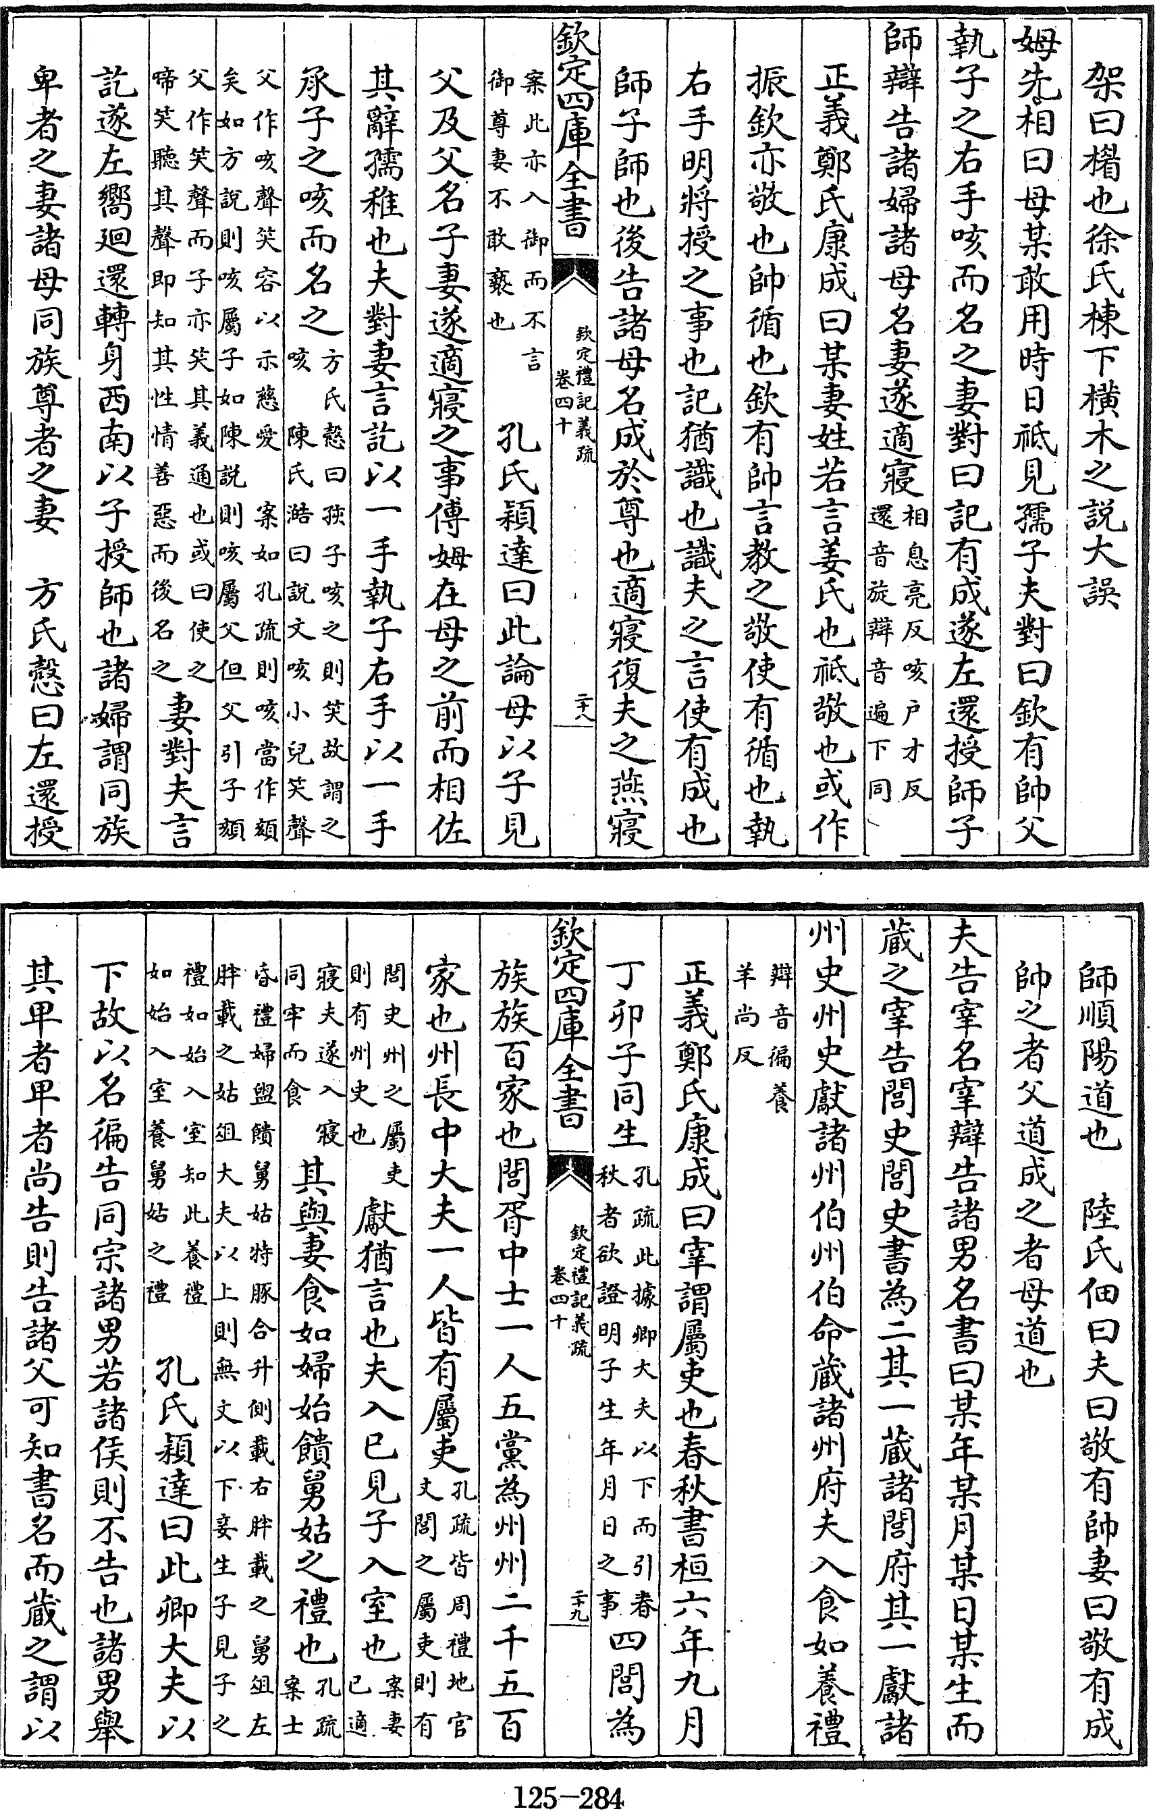 架曰楎也徐氏棟下橫木之説大誤
姆先相曰母某敢用時日祗見孺子夫對曰欽有帥父
執子之右手咳而名之妻對曰記有成遂左還授師子
師辯告諸婦諸母名妻遂適寢相息亮反咳户才反還音旋辯音遍下同
正義鄭氏康成曰某妻姓若言姜氏也祗敬也或作
振欽亦敬也帥循也欽有帥言教之敬使有循也執
右手明將授之事也記猶識也識夫之言使有成也
師子師也後告諸母名成於尊也適寢復夫之燕寢
欽定四庫全書
欽定禮記義疏
卷四十
二十八
案此亦入御而不言御尊妻不敢褻也 孔氏穎達曰此論母以子見
父及父名子妻遂適寢之事傅姆在母之前而相佐
其辭孺稚也夫對妻言訖以一手執子右手以一手
承子之咳而名之方氏慤曰孩子咳之則笑故謂之咳 陳氏澔曰説文咳小兒笑聲
父作咳聲笑容以示慈愛 案如孔疏則咳當作頦矣如方説則咳屬子如陳説則咳屬父但父引子頦
父作笑聲而子亦笑其義通也或曰使之啼笑聽其聲即知其性情善惡而後名之妻對夫言
訖遂左嚮廻還轉身西南以子授師也諸婦謂同族
卑者之妻諸母同族尊者之妻 方氏慤曰左還授
師順陽道也 陸氏佃曰夫曰敬有帥妻曰敬有成
帥之者父道成之者母道也
夫告宰名宰辯告諸男名書曰某年某月某日某生而
藏之宰告閭史閭史書為二其一藏諸閭府其一獻諸
州史州史獻諸州伯州伯命藏諸州府夫入食如養禮
辯音徧養羊尚反
正義鄭氏康成曰宰謂屬吏也春秋書桓六年九月
丁卯子同生孔疏此據卿大夫以下而引春秋者欲證明子生年月日之事四閭為
欽定四庫全書
欽定禮記義疏
卷四十
二十九
族族百家也閭胥中士一人五黨為州州二千五百
家也州長中大夫一人皆有屬吏孔疏皆周禮地官文閭之屬吏則有
閭史州之屬吏則有州史也獻猶言也夫入已見子入室也案妻已適
寢夫遂入寢同牢而食其與妻食如婦始饋舅姑之禮也孔疏案士
昏禮婦盥饋舅姑特豚合升側載右胖載之舅俎左胖載之姑俎大夫以上則無文以下妾生子見子之
禮如始入室知此養禮如始入室養舅姑之禮 孔氏穎達曰此卿大夫以
下故以名徧告同宗諸男若諸侯則不告也諸男舉
其卑者卑者尚告則告諸父可知書名而藏之謂以
125-284